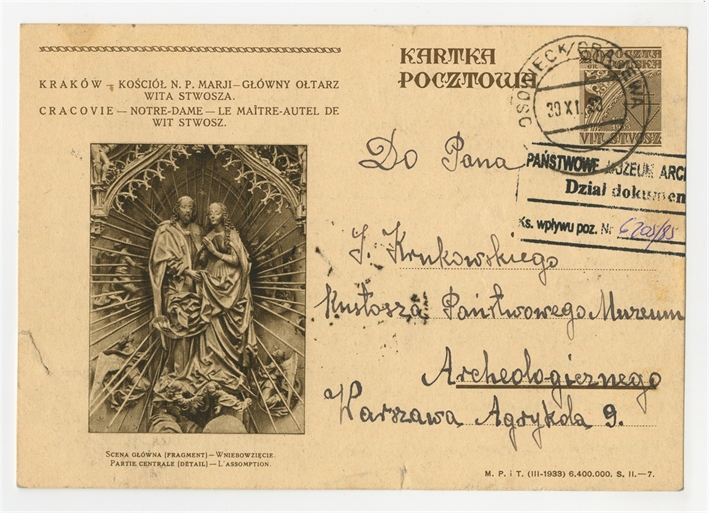 KRAKÓW – KOŚCIÓŁ N. P. MARJI – GŁÓWNY OŁTARZ
WITA STWOSZA.
CRACOVIE – NOTRE-DAME – LE MAÎTRE-AUTEL DE
WIT STWOSZ.
KARTKA
POCZTOWA
POCZTA
GR POLSKA
WIT STWOSZ
OSOWIEC K/GRAJEWA
30 XI
PAŃSTWOWE MUZEUM ARCH
Dział dokumen
Ks. wpływu poz. Nr
Do Pana
J. Krukowskiego
Kustosza Państwowego Muzeum
Archeologicznego
Warszawa Agrykola 9.
SCENA GŁÓWNA (FRAGMENT) – WNIEBOWZIĘCIE.
PARTIE CENTRALE (DÉTAIL) – L'ASSOMPTION.
M. P. i T. (III-1933) 6.400.000. S. II.–7.